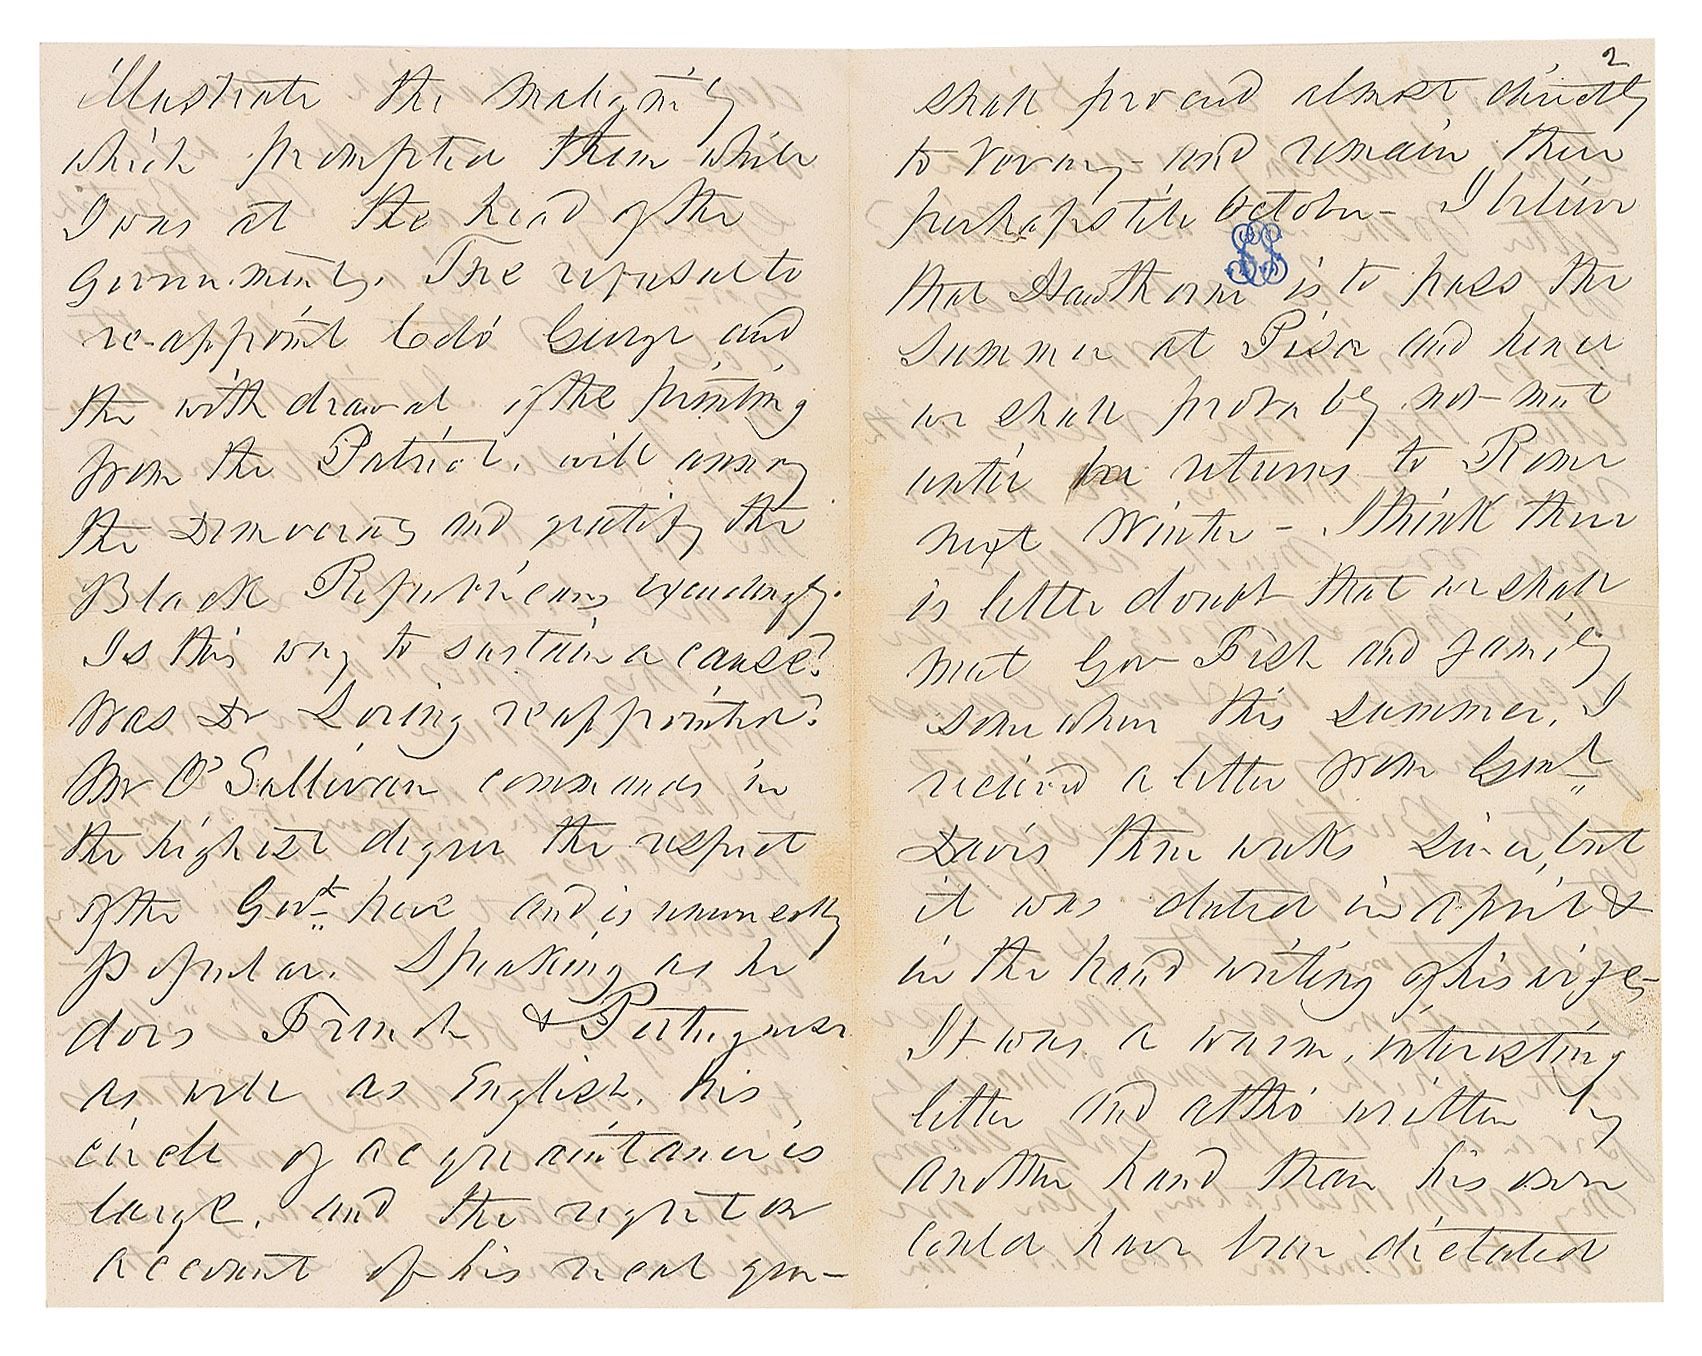 illustrate the malignity
which prompted them while
I was at the head of the
Government. The refusal to
re-appoint Col° George and
the withdrawal of the printing
from the Patriot, will annoy
the Democrats and gratify the
Black Republicans exceedingly.
Is this way to sustain a cause?
Was Dr Loring reappointed?
Mr O'Sullivan commands in
the highest degree the respect
of the Govt here and is
popular. Speaking as he
does French & Portuguese
as well as English, his
circle of acquaintance is
large, and the regret on
account of his recal gen-
2
shall proceed almost directly
to Vevay - and remain there
perhaps till October - I believe
that Hawthorne is to pass the
Summer at Pisa and hence
we shall probably not meet
until he returns to Rome
next Winter - I think there
is little doubt that we shall
meet Gov Fish and family
somewhere this summer. I
recieved a letter from Genl
Davis three weeks since, but
it was dated in April &
in the hand writing of his wife -
It was a warm, interesting
letter and altho' written by
another hand than his own
could have been dictated